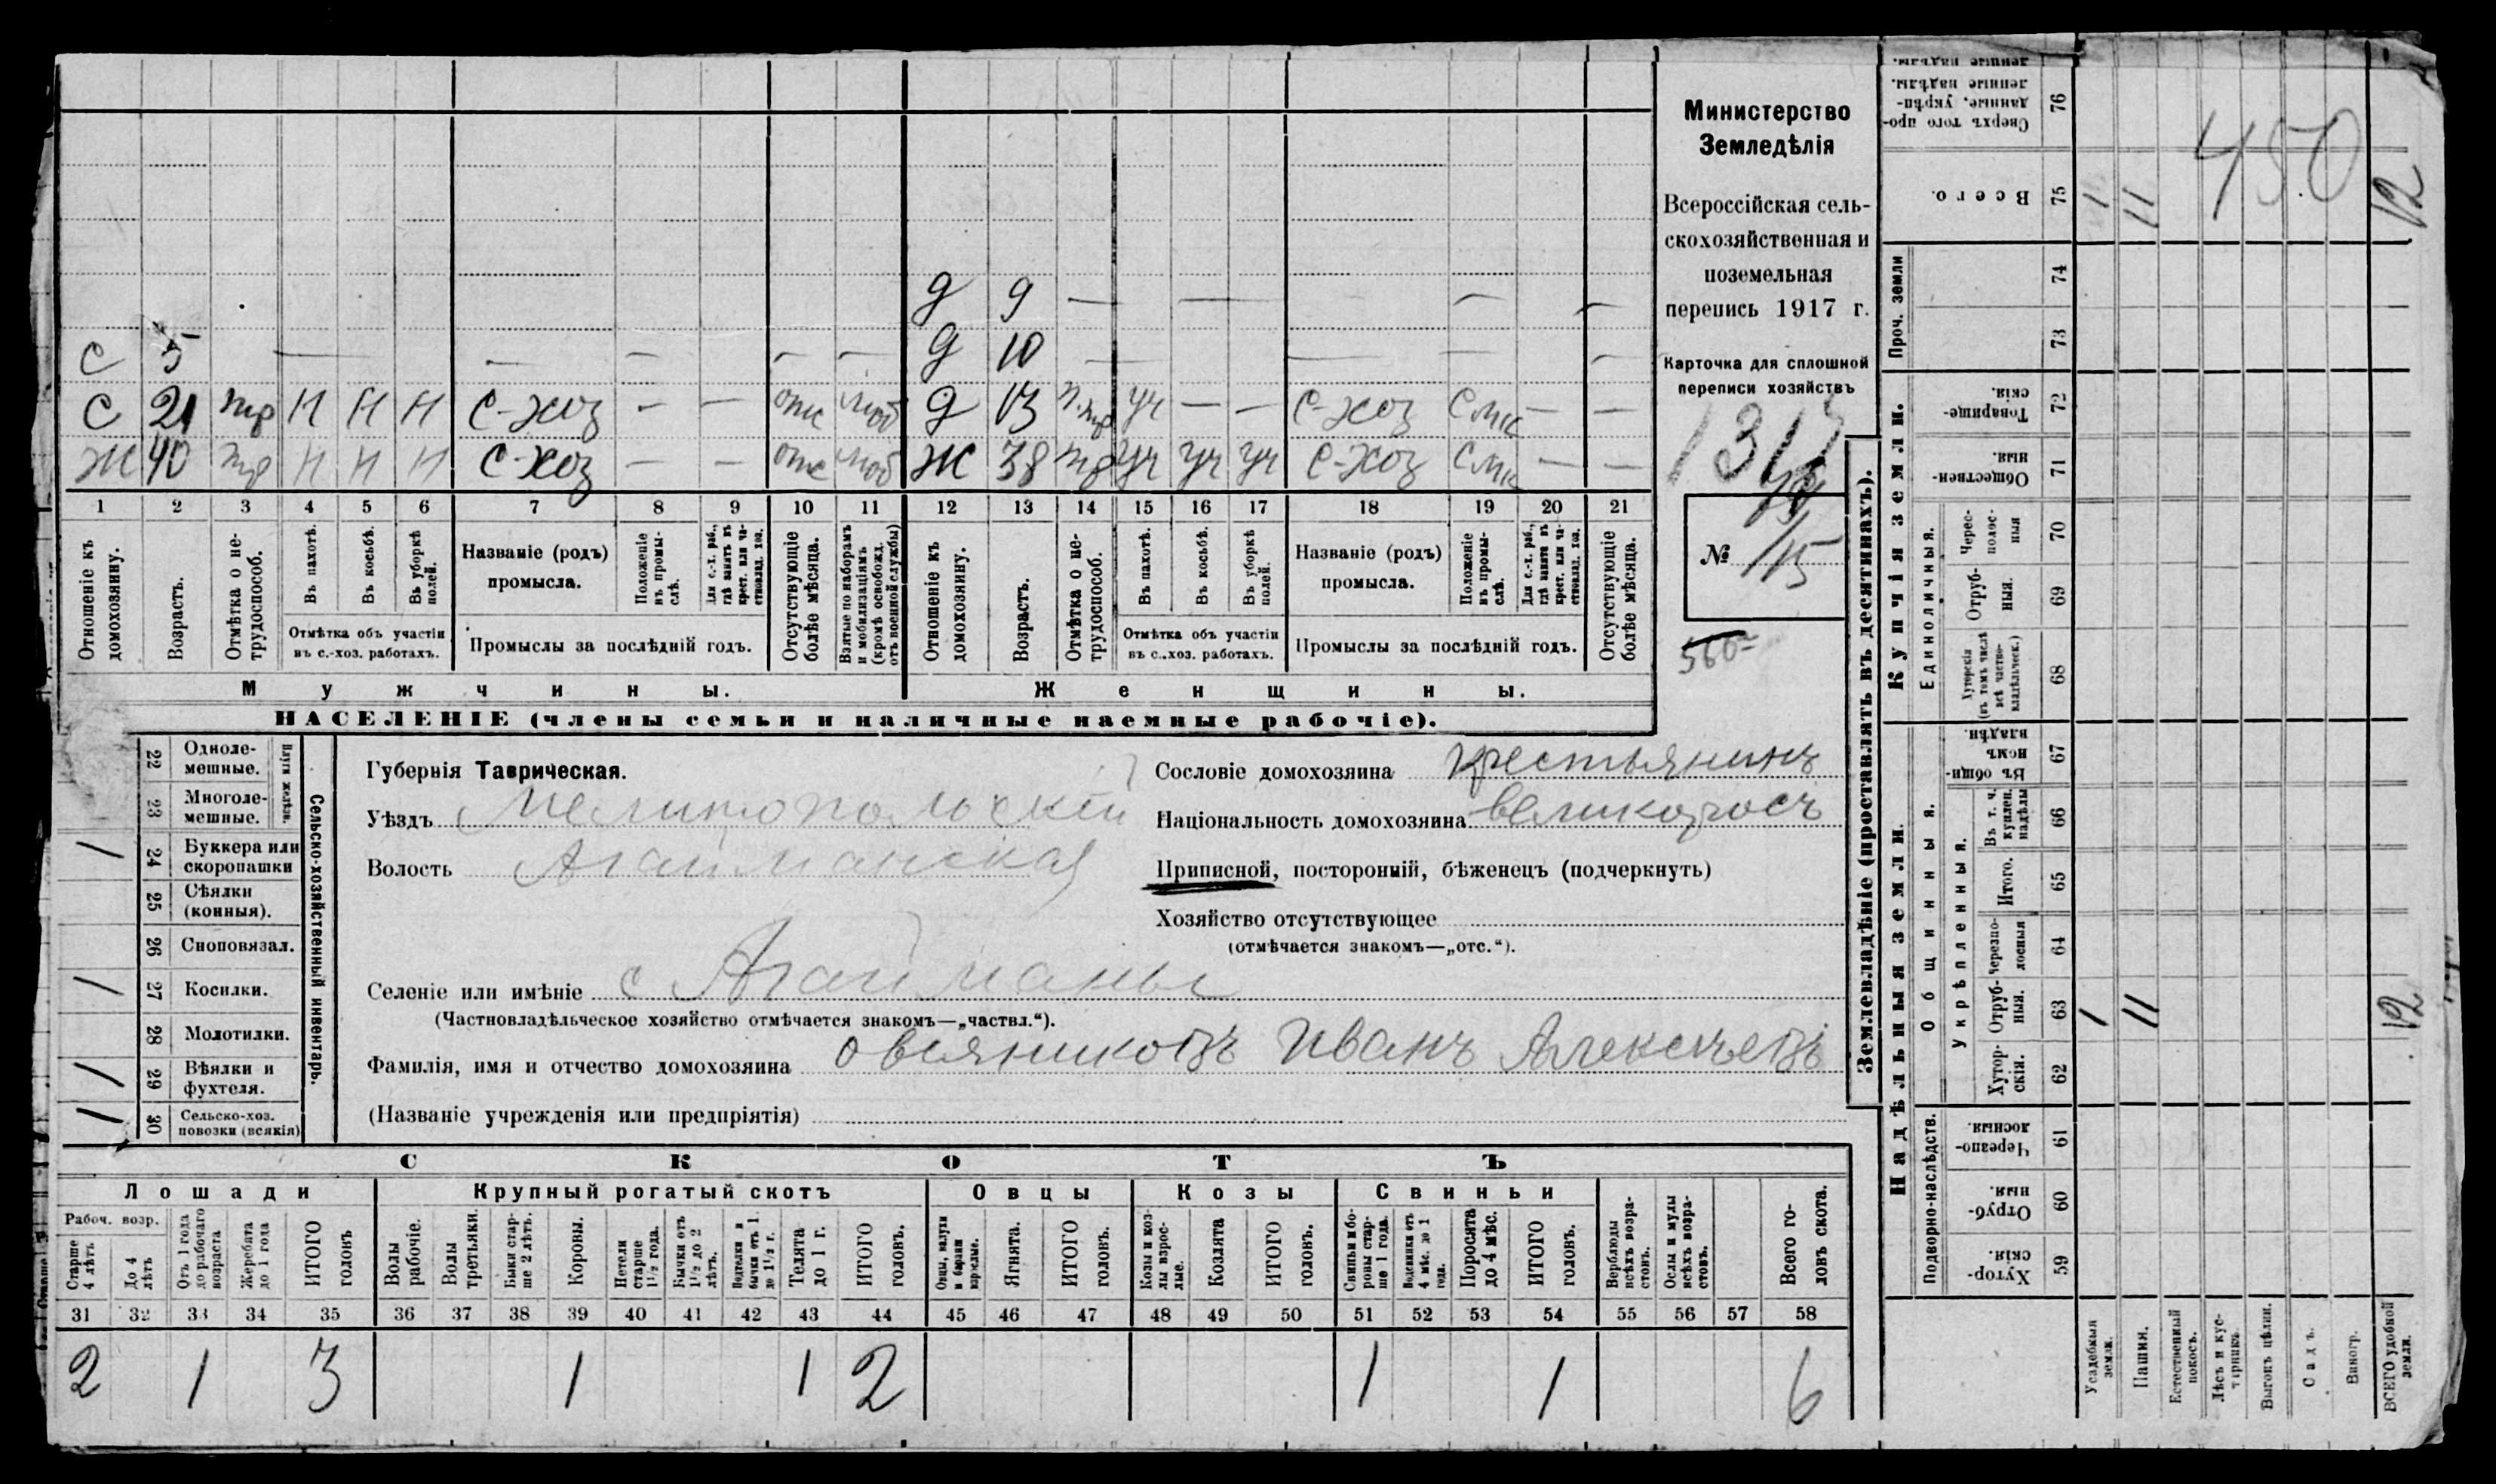 Министерство
Земледѣлія
Всероссійская сель-
скохозяйственная и
поземельная
перепись 1917 г.
Карточка для сплошной
переписи хозяйствъ
1313
№ 15
560
Д 9 — — — —
С 5 — — — — — Д 10 — — — —
С 21 Н Н Н С-хоз — — отс моб Д 13 уч — — С-хоз — —
Ж 40 Н Н Н С-хоз — — отс моб Ж 38 уч уч уч С-хоз — —
1 2 3 4 5 6 7 8 9 10 11 12 13 14 15 16 17 18 19 20 21
Отношеніе къ домохозяину.
Возрастъ.
Отмѣтка о не-трудоспособ.
Въ пахотѣ.
Въ косьбѣ.
Въ уборкѣ полей.
Отмѣтка объ участіи
въ с.-хоз. работахъ.
Названіе (родъ)
промысла.
Положеніе въ промы-слѣ.
Для с.-х. раб., гдѣ занятъ въ крест. или ча-стновлад. хоз.
Промыслы за послѣдній годъ.
Отсутствующіе болѣе мѣсяца.
Взятые по наборамъ и мобилизаціямъ (кромѣ освобожд. отъ военной службы)
Отношеніе къ домохозяину.
Возрастъ.
Отмѣтка о не-трудоспособ.
Въ пахотѣ.
Въ косьбѣ.
Въ уборкѣ полей.
Отмѣтка объ участіи
въ с.-хоз. работахъ.
Названіе (родъ)
промысла.
Положеніе въ промы-слѣ.
Для с.-х. раб., гдѣ занятъ въ крест. или ча-стновлад. хоз.
Промыслы за послѣдній годъ.
Отсутствующіе болѣе мѣсяца.
Мужчины. Женщины.
НАСЕЛЕНІЕ (члены семьи и наличные наемные рабочіе).
Сельско-хозяйственный инвентарь.
Плуги желѣзн.
22 Одноле-мешные.
23 Многоле-мешные.
1 24 Буккера или скоропашки
25 Сѣялки (конныя).
26 Сноповязал.
1 27 Косилки.
28 Молотилки.
1 29 Вѣялки и фухтеля.
1 30 Сельско-хоз. повозки (всякія)
Губернія Таврическая.
Уѣздъ Мелитопольскій
Волость Агайманская
Селеніе или имѣніе с Агайманы
(Частновладѣльческое хозяйство отмѣчается знакомъ—„частвл.“).
Фамилія, имя и отчество домохозяина Овсянниковъ Иванъ Алексѣевъ
(Названіе учрежденія или предпріятія)
Сословіе домохозяина крестьянинъ
Національность домохозяина великоросъ
Приписной, посторонній, бѣженецъ (подчеркнуть)
Хозяйство отсутствующее
(отмѣчается знакомъ—„отс.“).
СКОТЪ
Лошади Крупный рогатый скотъ Овцы Козы Свиньи
Рабоч. возр.
Старше 4 лѣтъ
До 4 лѣтъ
Отъ 1 года до рабочаго возраста
Жеребята до 1 года
ИТОГО головъ
Волы рабочіе.
Волы третьяки.
Быки стар-ше 2 лѣтъ.
Коровы.
Нетели старше 1½ года.
Бычки отъ 1½ до 2 лѣтъ.
Подтелки и бычки отъ 1 до 1½ г.
Телята до 1 г.
ИТОГО головъ.
Овцы, валухи и бараны взрослые.
Ягнята.
ИТОГО головъ.
Козы и коз-лы взрос-лые.
Козлята
ИТОГО головъ.
Свиньи и бо-ровы стар-ше 1 года.
Подсвинки отъ 4 мѣс. до 1 года.
Поросята до 4 мѣс.
ИТОГО головъ.
Верблюды всѣхъ возра-стовъ.
Ослы и мулы всѣхъ возра-стовъ.
Всего го-ловъ скота.
31 32 33 34 35 36 37 38 39 40 41 42 43 44 45 46 47 48 49 50 51 52 53 54 55 56 57 58
2 1 3 1 1 2 1 1 6
Землевладѣніе (проставлять въ десятинахъ).
Надѣльныя земли. Купчія земли. Проч. земли
Подворно-наслѣдств.
Общинныя.
Укрѣпленныя.
Единоличныя.
59 Хутор-скія.
60 Отруб-ныя.
61 Черезпо-лосныя.
62 Хутор-скія.
63 Отруб-ныя. 1 11 12
64 Черезпо-лосныя
65 Итого.
66 Въ т. ч. куплен. надѣлы
67 Въ общин-номъ владѣн.
68 Хуторскія (въ томъ числѣ всѣ частно-владѣльческ.)
69 Отруб-ныя.
70 Черес-полос-ныя
71 Обществен-ныя.
72 Товарище-скія.
73
74
75 Всего. 1 11 12
76 Сверхъ того про-данные, укрѣп-ленные надѣлы.
450
Усадебныя земли.
Пашня.
Естественный покосъ.
Лѣсъ и кус-тарникъ.
Выгонъ цѣлин.
Садъ.
Виногр.
ВСЕГО удобной земли.